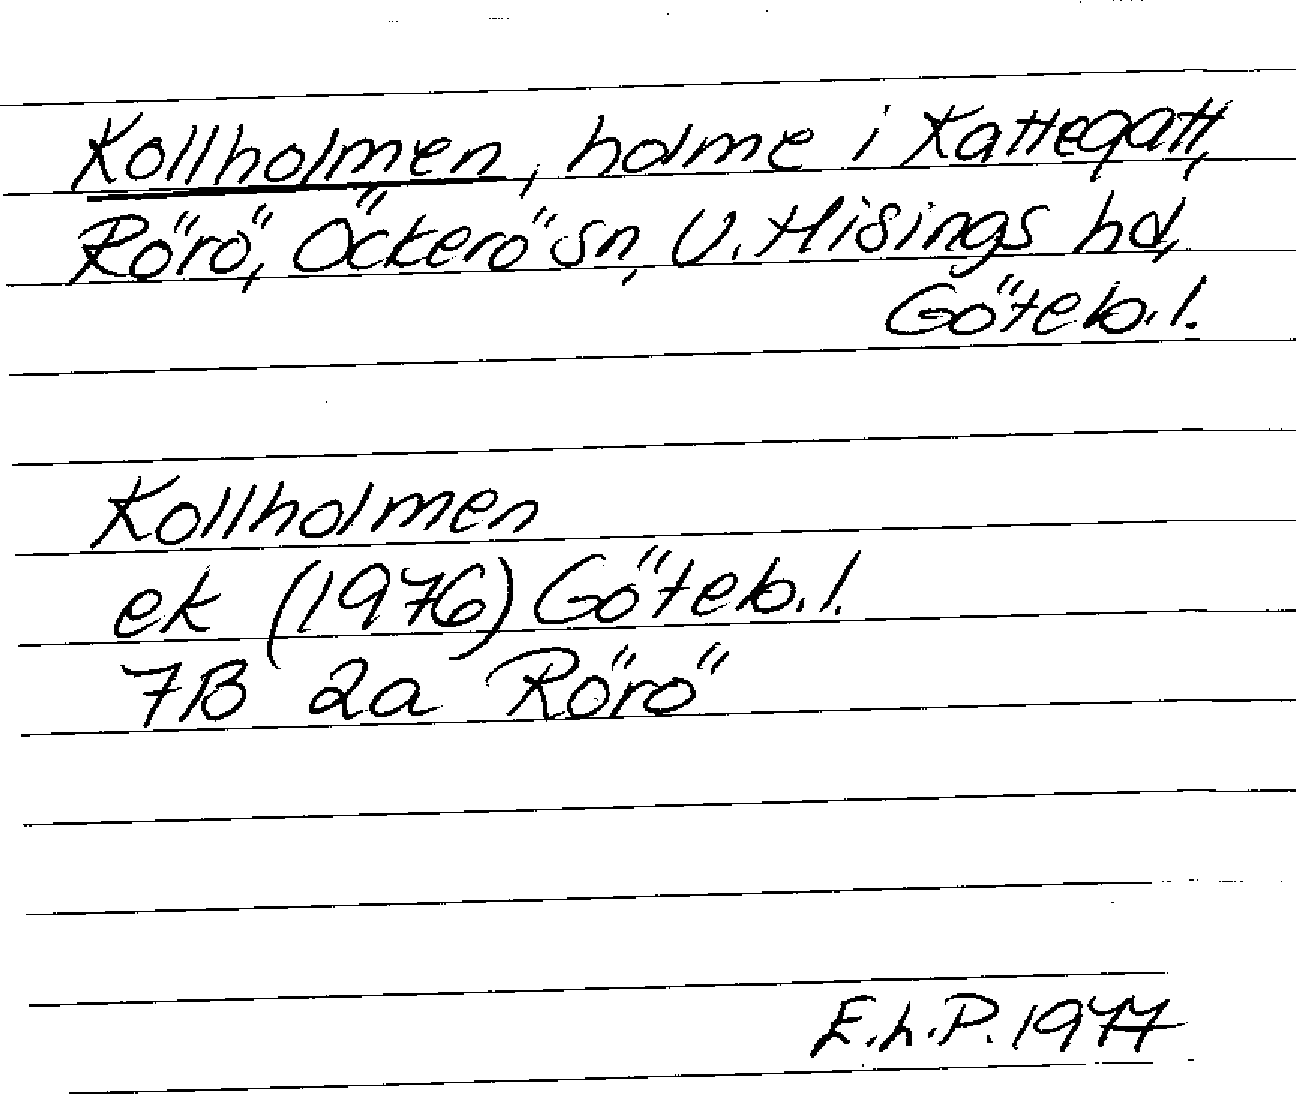 Kollholmen, holme i Kattegatt,
Rörö, Öckerö sn, V. Hisings hd,
Göteb. l.
Kollholmen
ek (1976) Göteb. l.
7B 2a Rörö
E.h.P. 1977